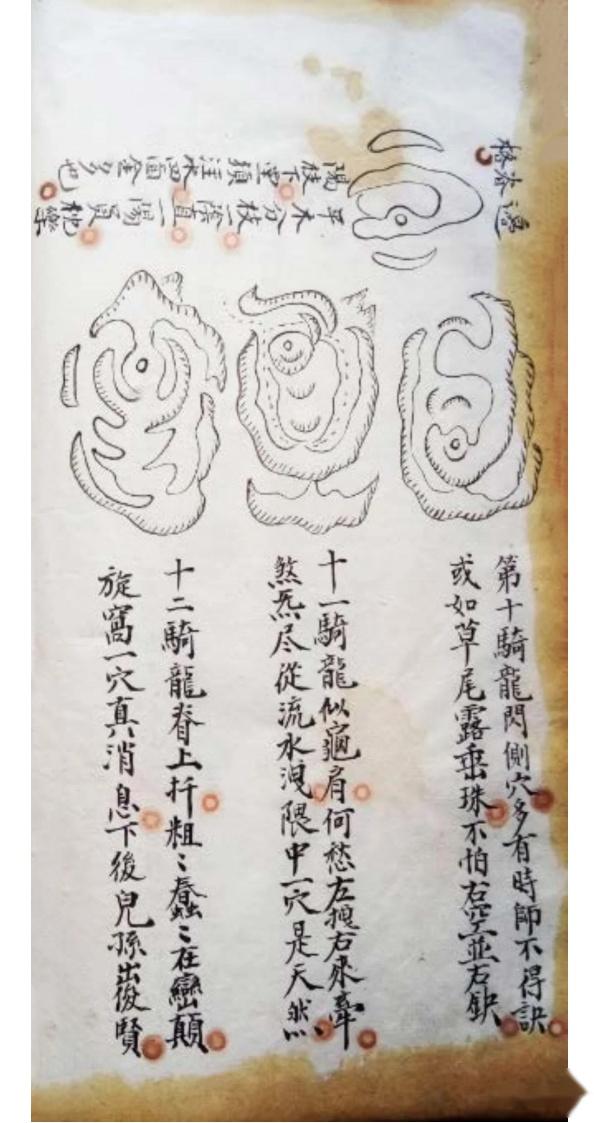 平木分枝一條直一陽
陽枝下 頭注水四面金多也
第十騎龍閃側穴多有時師不得訣
或如草尾露垂珠不怕右空並右缺
十一騎龍似龜肩何愁左拽右來牽
煞炁尽從流水洩隈中一穴是天然
十二騎龍脊上扦粗〻蠢〻在巒顛
旋窩一穴真消息下後兒孫出俊賢